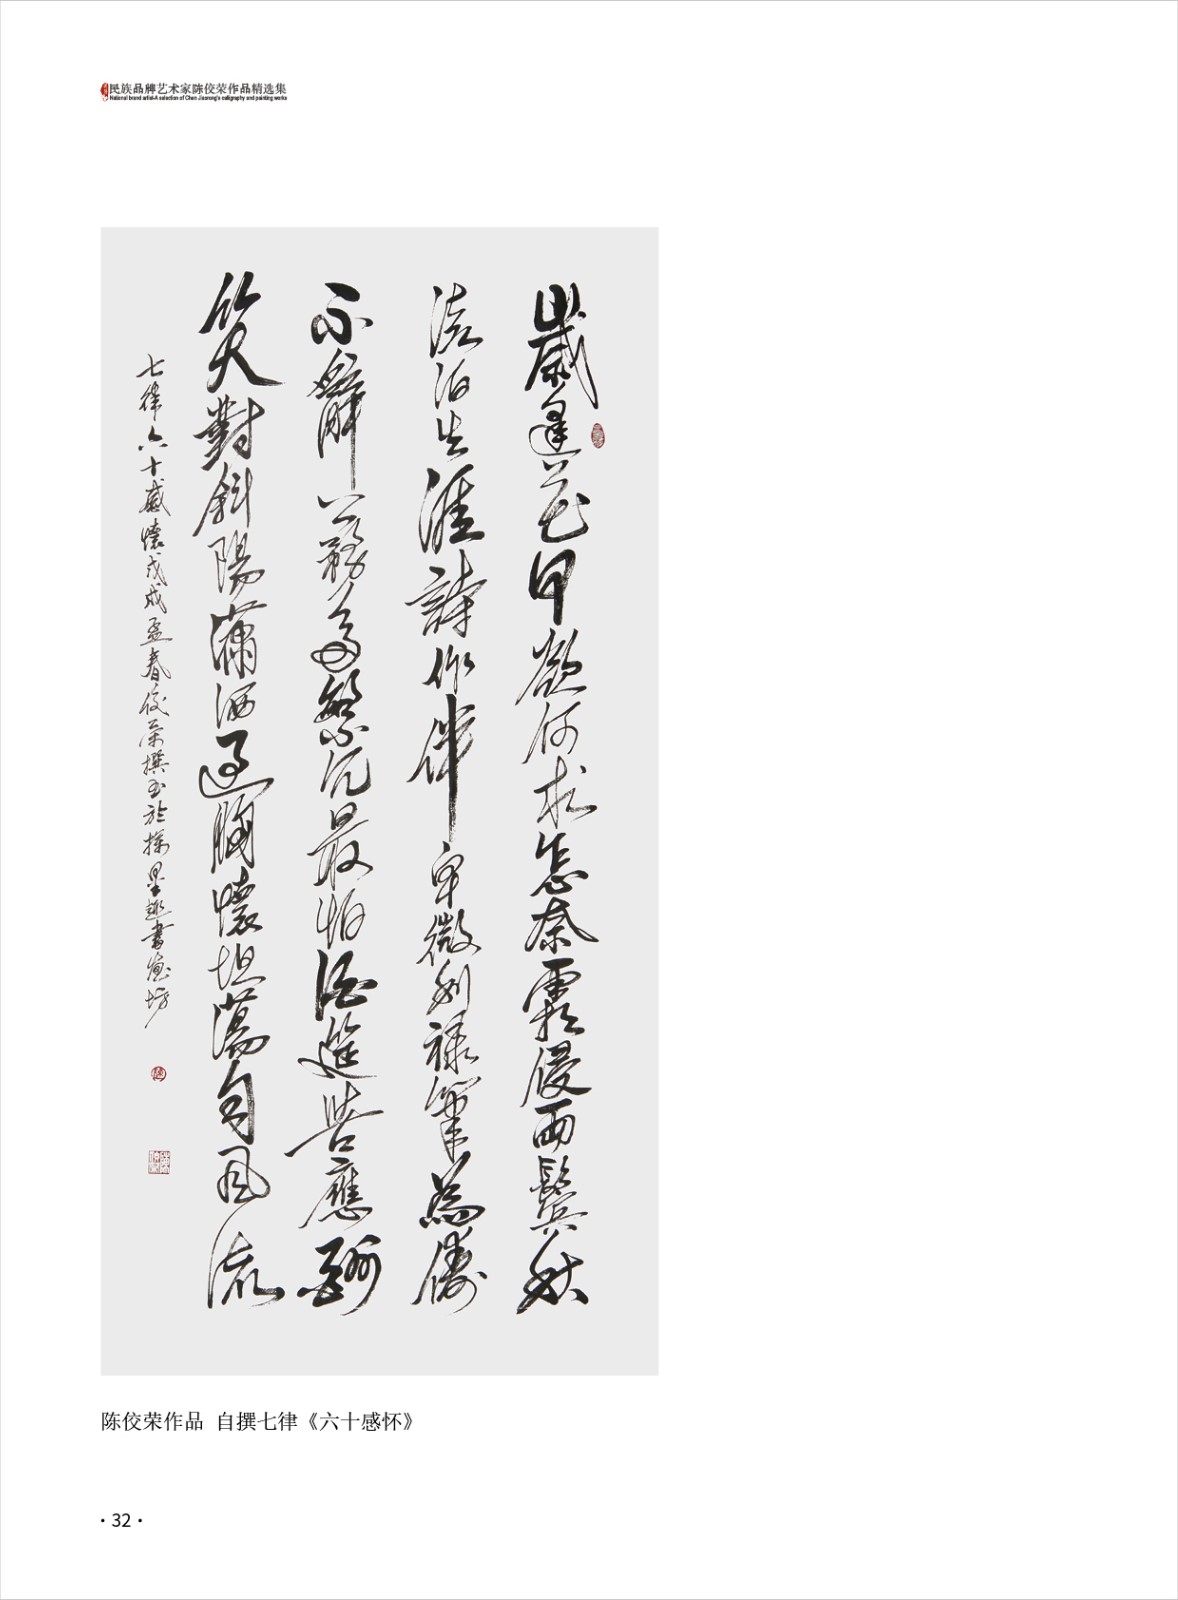 民族品牌艺术家陈佼荣作品精选集
National brand artist-A selection of Chen Jiaorong's calligraphy and painting works
歲逢花甲欲何求怎奈霜侵兩鬢秋
淡泊生涯詩作伴卑微利祿筆為儔
不辭公務多繁冗最怕酒筵苦應酬
笑對斜陽瀟洒過胸懷坦蕩自風流
七律六十感懷戊戌孟春佼榮撰書於墨趣書畫坊
陈佼荣作品 自撰七律《六十感怀》
·32·